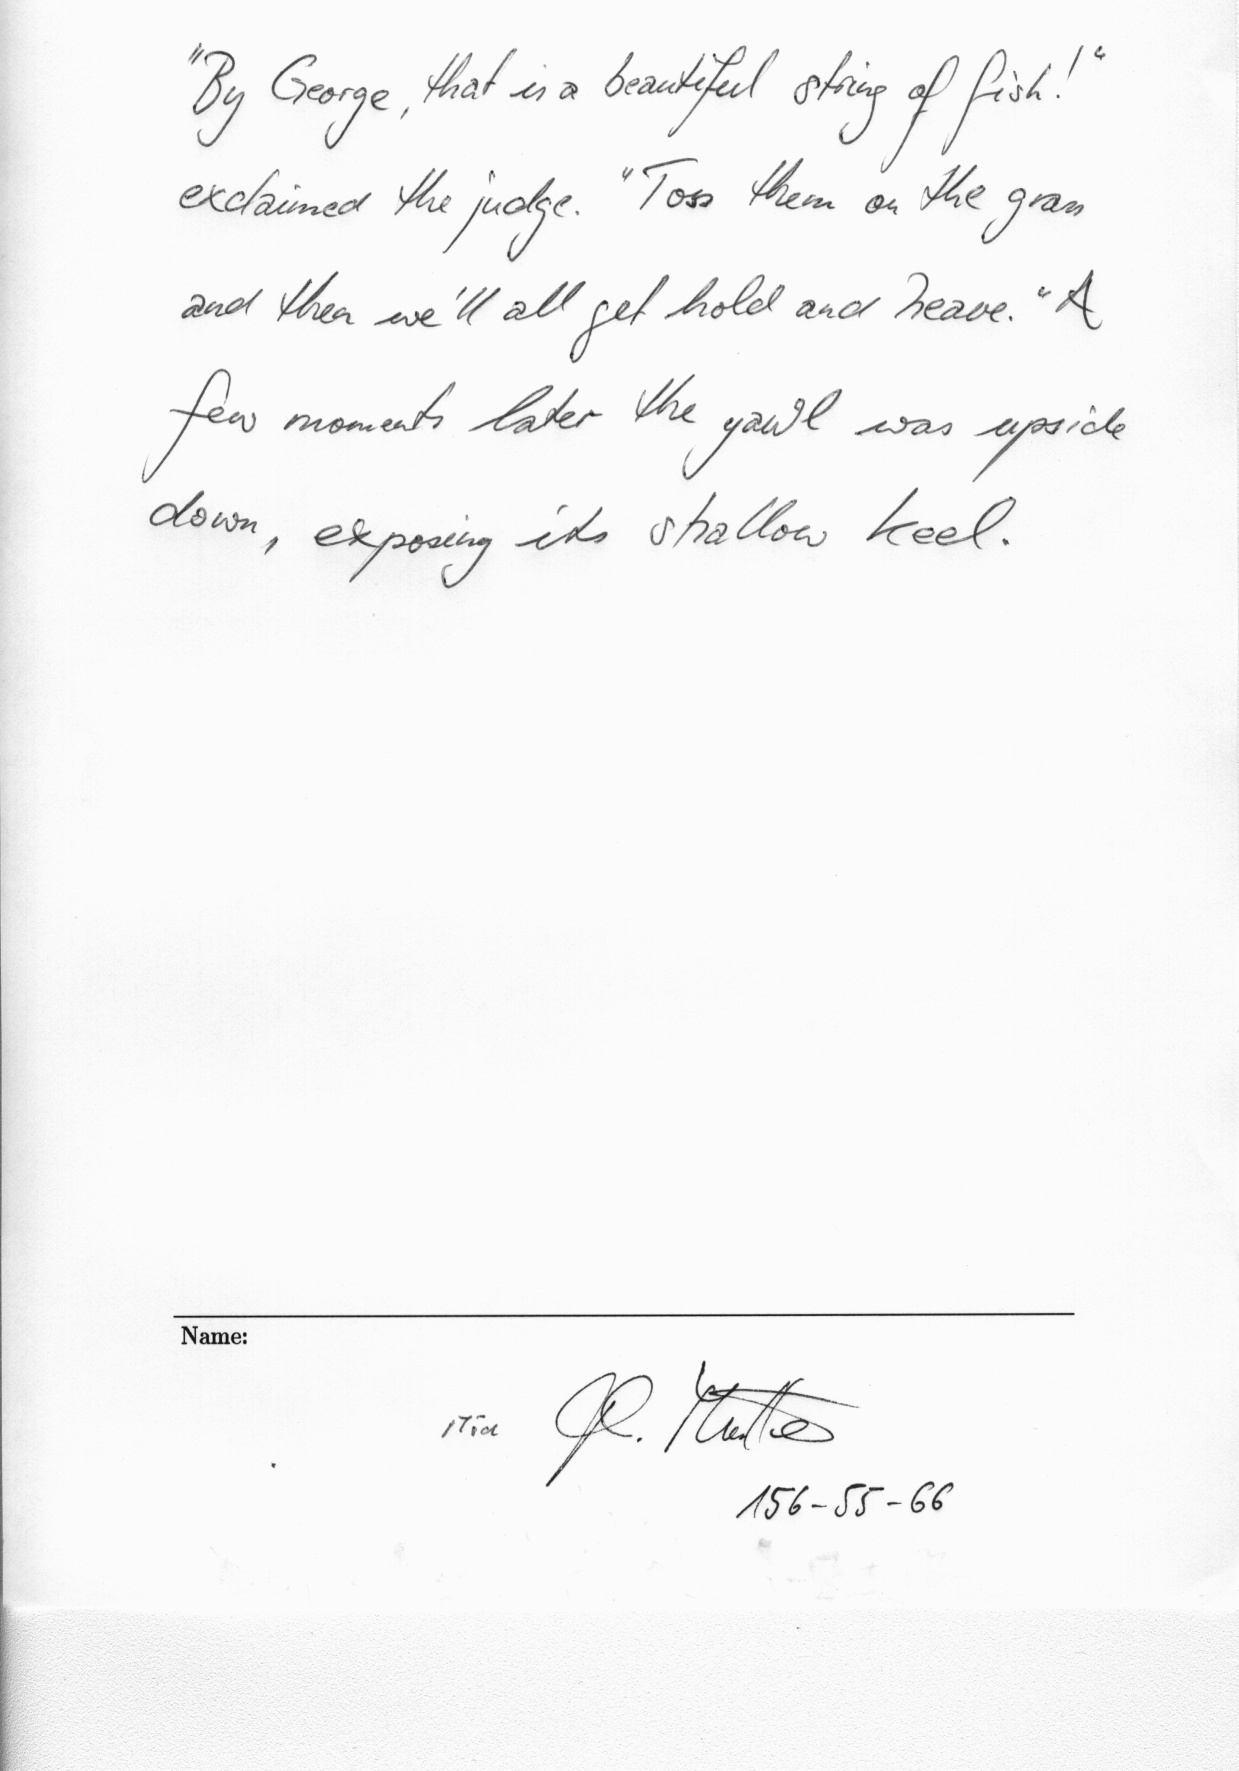 "By George, that is a beautiful string of fish!"
exclaimed the judge. "Toss them on the grass
and then we'll all get hold and heave." A
few moments later the yawl was upside
down, exposing its shallow keel.
Name:
156-55-66